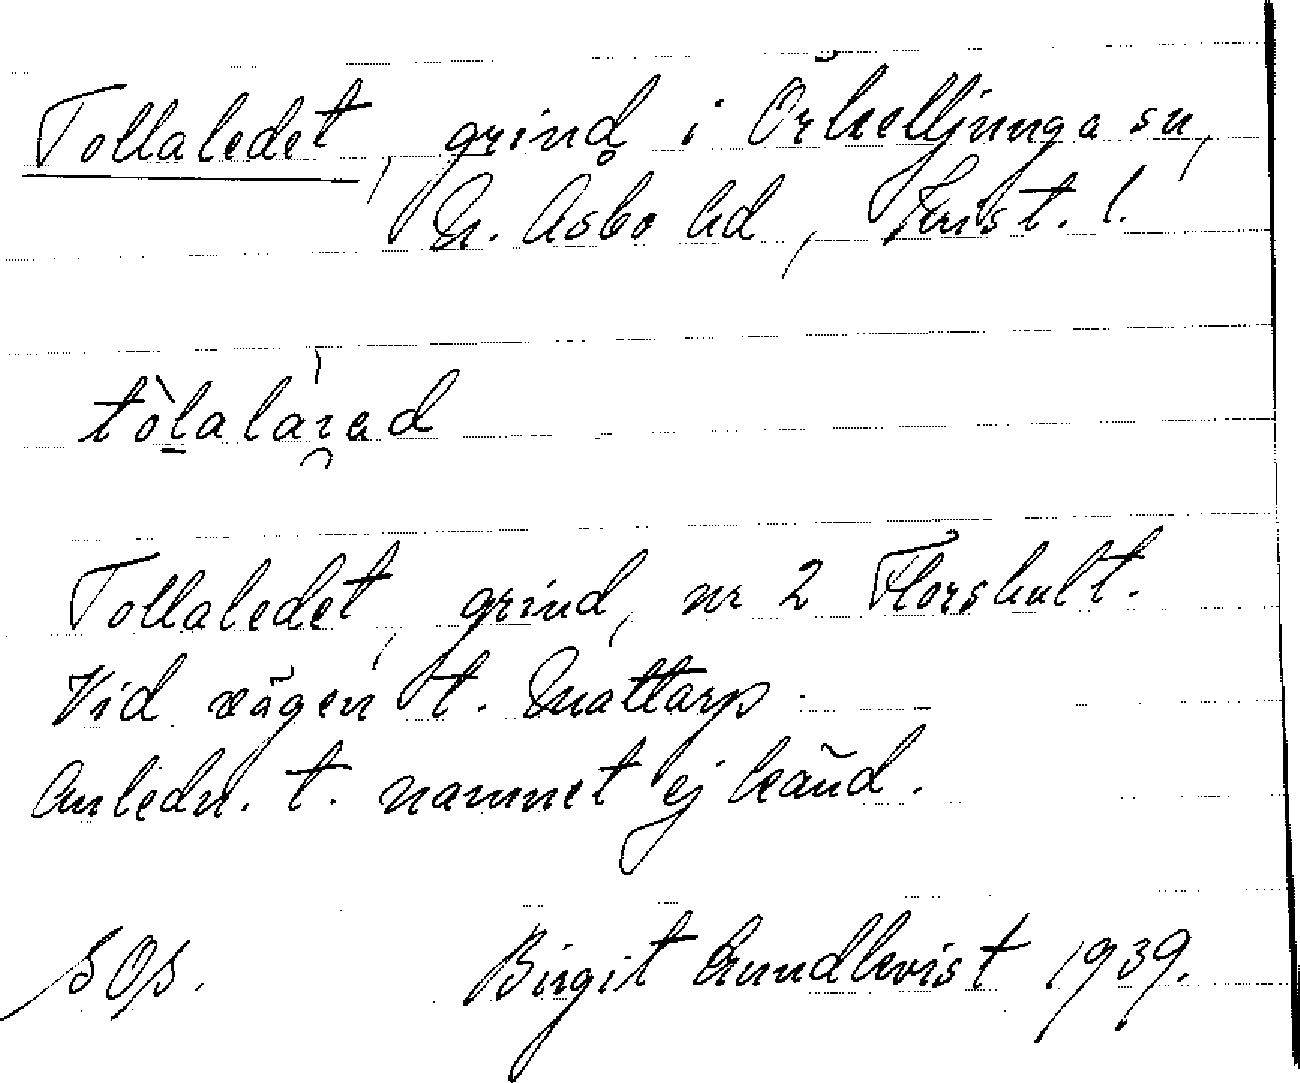 Tollaledet, grind i Örkelljunga sn,
N. Åsbo hd, Krist. l.
tòlalàrad
Tollaledet, grind, nr 2 Florshult.
Vid vägen t. Snattarp.
Anledn. t. namnet ej känd.
SOS. Birgit Lundkvist 1939.